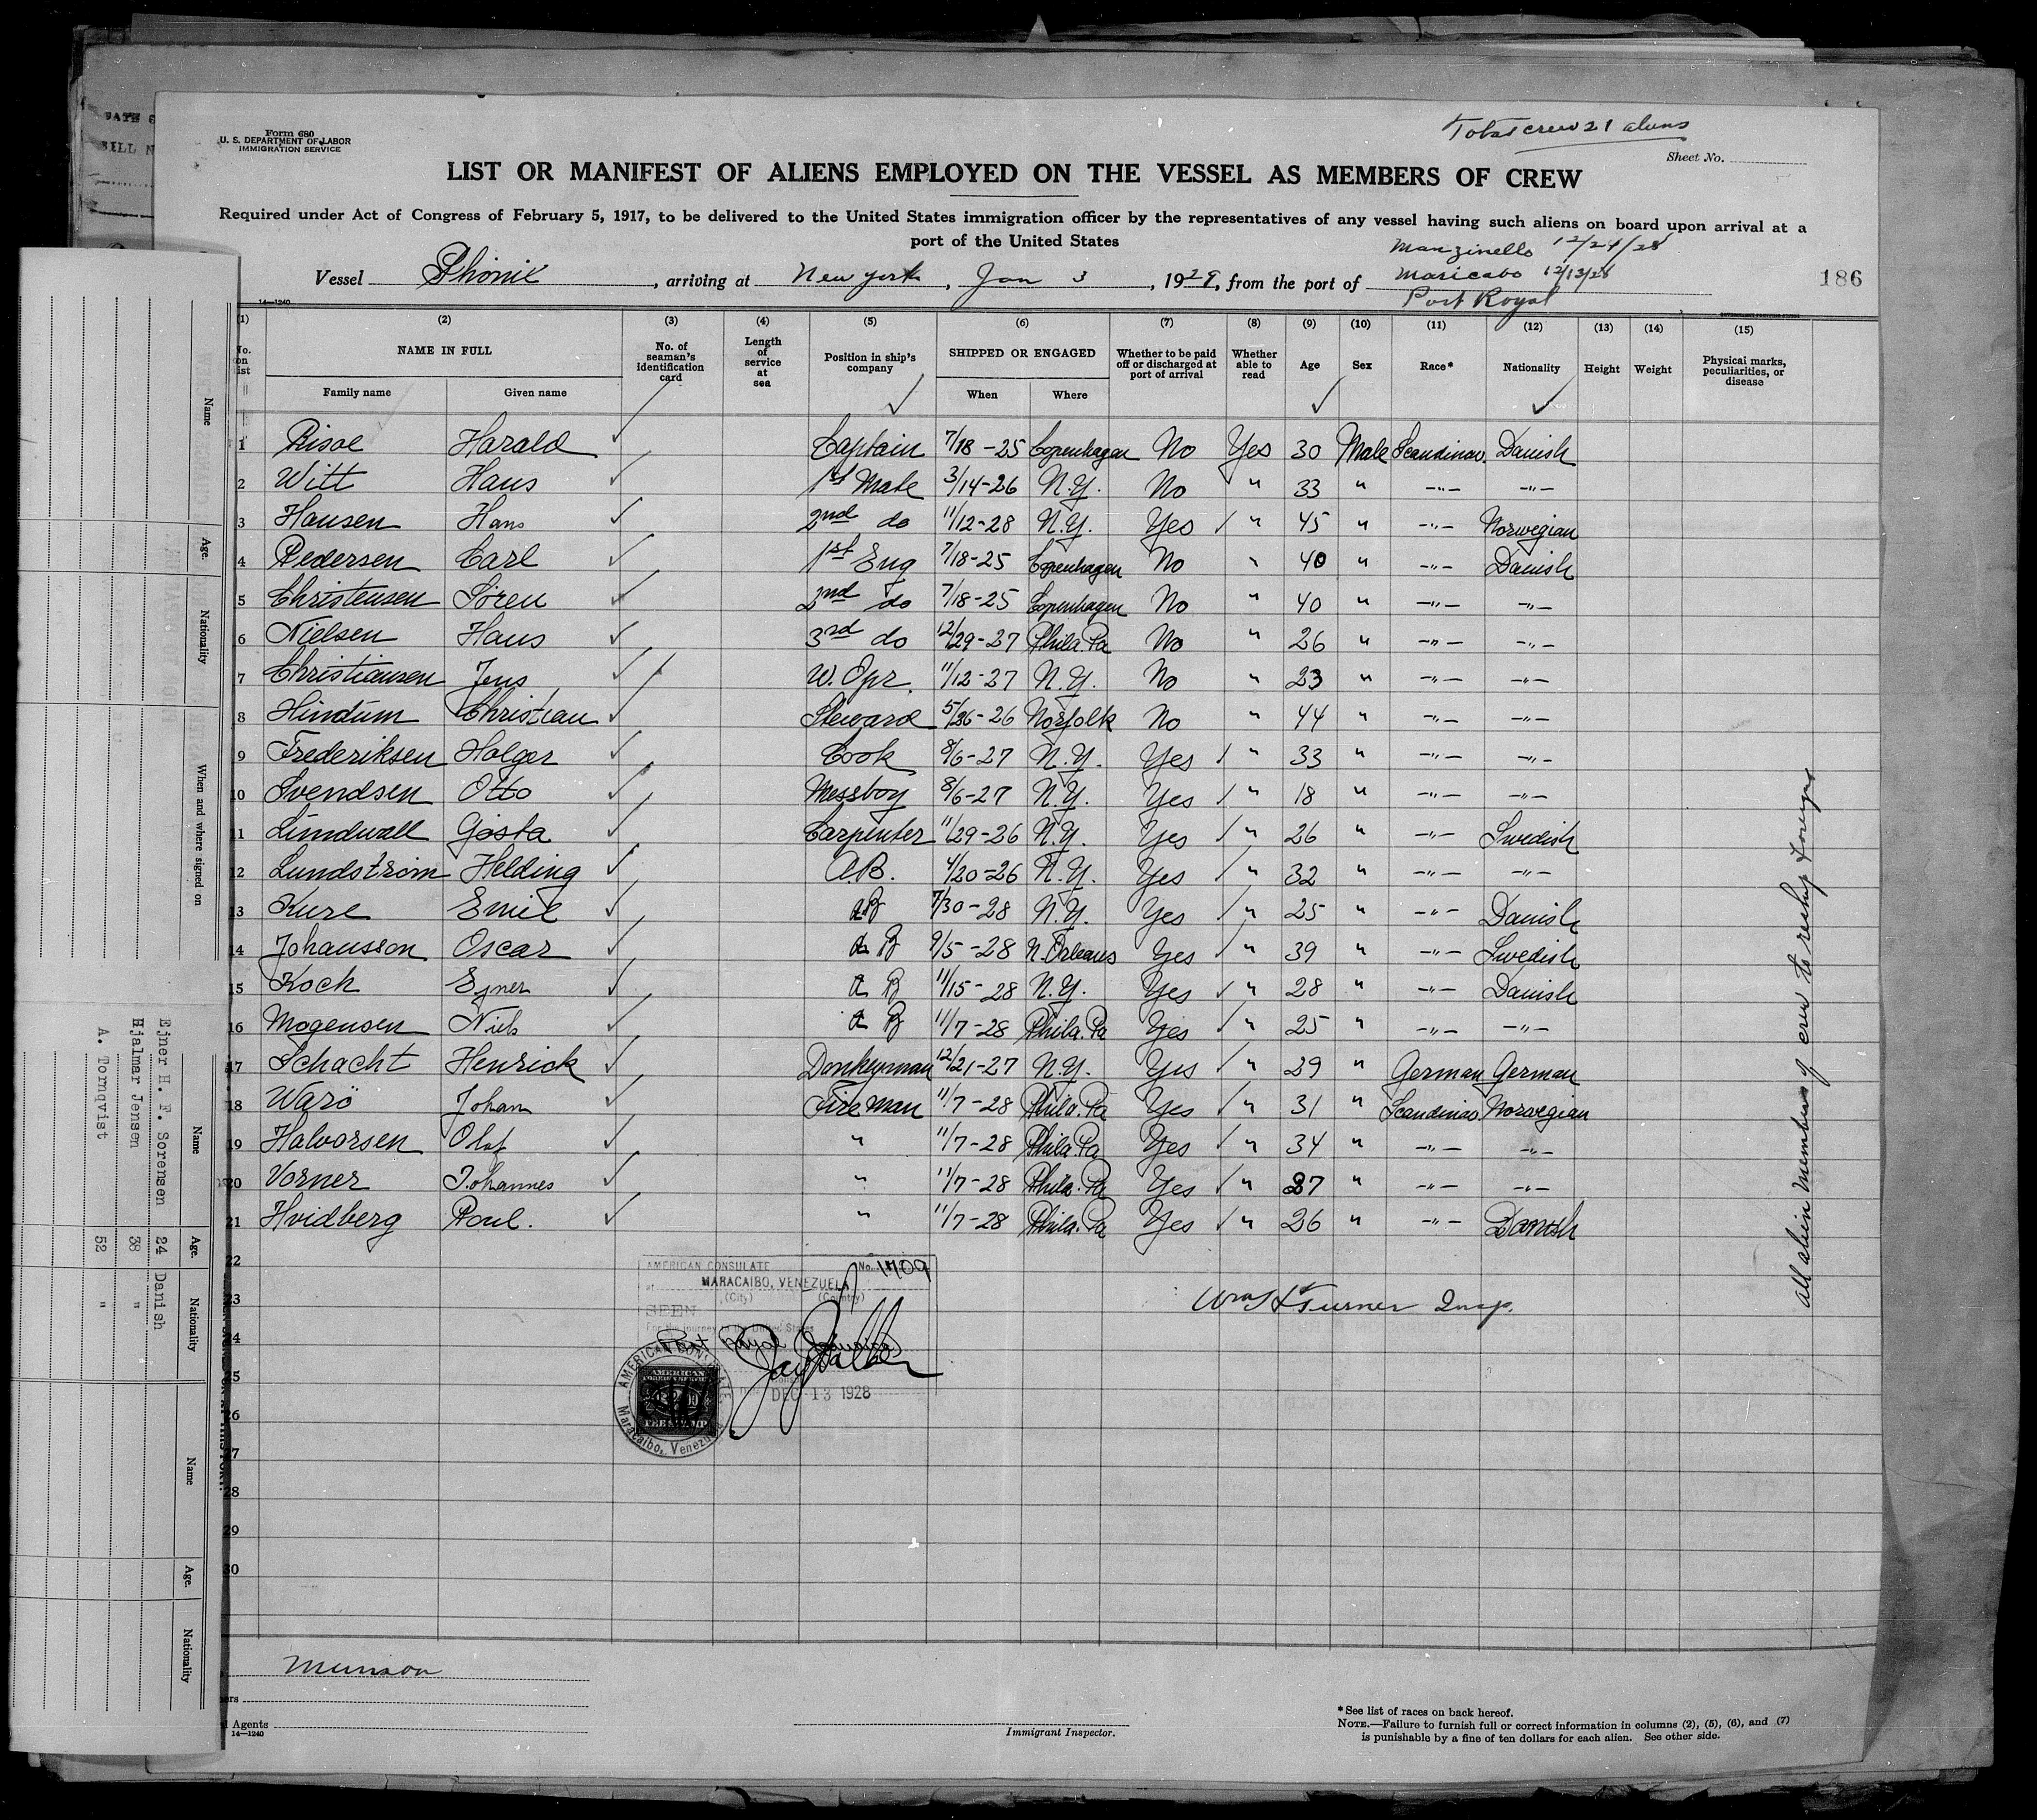 Total crew 21 aliens
Form 680
U. S. DEPARTMENT OF LABOR
IMMIGRATION SERVICE
Sheet No.
LIST OR MANIFEST OF ALIENS EMPLOYED ON THE VESSEL AS MEMBERS OF CREW
Required under Act of Congress of February 5, 1917, to be delivered to the United States immigration officer by the representatives of any vessel having such aliens on board upon arrival at a
port of the United States
Manzinello 12/24/28
Vessel Phönix, arriving at New York, Jan 3, 1929, from the port of Maricabo 12/13/28
Port Royal
186
14—1240
(1) (2) (3) (4) (5) (6) (7) (8) (9) (10) (11) (12) (13) (14) (15)
No. on list NAME IN FULL No. of seaman's identification card Length of service at sea Position in ship's company SHIPPED OR ENGAGED Whether to be paid off or discharged at port of arrival Whether able to read Age Sex Race* Nationality Height Weight Physical marks, peculiarities, or disease
Family name Given name When Where
1 Risoe Harald Captain 7/18-25 Copenhagen No Yes 30 Male Scandinav. Danish
2 Witt Hans 1st Mate 3/14-26 N.Y. No " 33 " -"- -"-
3 Hansen Hans 2nd do 11/12-28 N.Y. Yes " 45 " -"- Norwegian
4 Pedersen Carl 1st Eng 7/18-25 Copenhagen No " 40 " -"- Danish
5 Christensen Sören 2nd do 7/18-25 Copenhagen No " 40 " -"- -"-
6 Nielsen Hans 3rd do 12/29-27 Phila. Pa No " 26 " -"- -"-
7 Christiansen Jens W. Opr. 11/12-27 N.Y. No " 23 " -"- -"-
8 Hindum Christian Steward 5/26-26 Norfolk No " 44 " -"- -"-
9 Frederiksen Holger Cook 8/6-27 N.Y. Yes " 33 " -"- -"-
10 Svendsen Otto Messboy 8/6-27 N.Y. Yes " 18 " -"- -"-
11 Lundwall Gösta Carpenter 11/29-26 N.Y. Yes " 26 " -"- Swedish
12 Lundström Helding A.B. 4/20-26 N.Y. Yes " 32 " -"- -"-
13 Kure Emil AB 7/30-28 N.Y. Yes " 25 " -"- Danish
14 Johansson Oscar A B 9/5-28 N. Orleans Yes " 39 " -"- Swedish
15 Kock Ejner A B 11/15-28 N.Y. Yes " 28 " -"- Danish
16 Mogensen Niels A B 11/7-28 Phila. Pa Yes " 25 " -"- -"-
17 Schacht Henrick Donkeyman 12/21-27 N.Y. Yes " 39 " German German
18 Warö Johan Fireman 11/7-28 Phila. Pa Yes " 31 " Scandinav Norwegian
19 Halvorsen Olaf " 11/7-28 Phila. Pa Yes " 34 " -"- -"-
20 Vorner Johannes " 11/7-28 Phila. Pa Yes " 37 " -"- -"-
21 Hvidberg Poul. " 11/7-28 Phila. Pa Yes " 26 " -"- Danish
22
23
24
25
26
27
28
29
30
All alien members of crew to reship foreign
AMERICAN CONSULATE No. 1409
at MARACAIBO, VENEZUELA
(City) (Country)
SEEN
For the journey to the United States
Port Royal
DEC 13 1928
AMERICAN CONSULATE
Maracaibo, Venezuela
AMERICAN
FOREIGN SERVICE
FEE STAMP
Wm Turner Insp.
Munson
Agents
14—1240
Immigrant Inspector.
*See list of races on back hereof.
NOTE.—Failure to furnish full or correct information in columns (2), (5), (6), and (7)
is punishable by a fine of ten dollars for each alien. See other side.
Name Age. Nationality When and where signed on
Name Age. Nationality
Ejner H. F. Sorensen 24 Danish
Hjalmar Jensen 38 "
A. Tornqvist 52 "
Name Age. Nationality